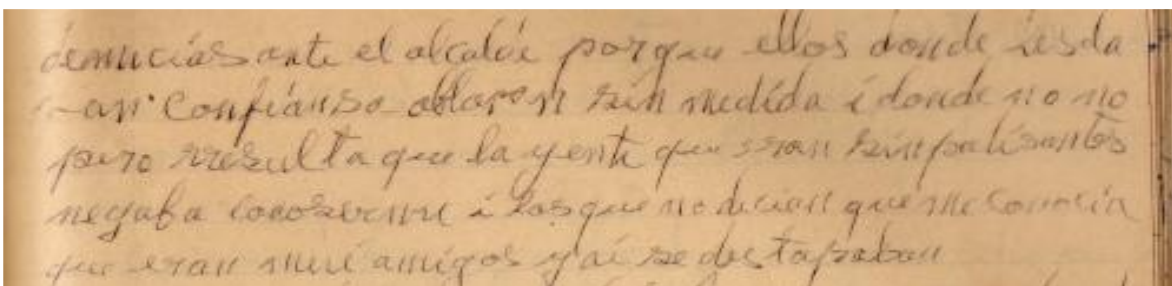 denucias ante el alcalde porque ellos donde lesda
an confianso ablaron sin medida i donde no no
pero rresulta que la yente que eran sinpatisantes
negaba conoserme i los que no decian que me conocia
que eran mui amigos y ai se destapaban